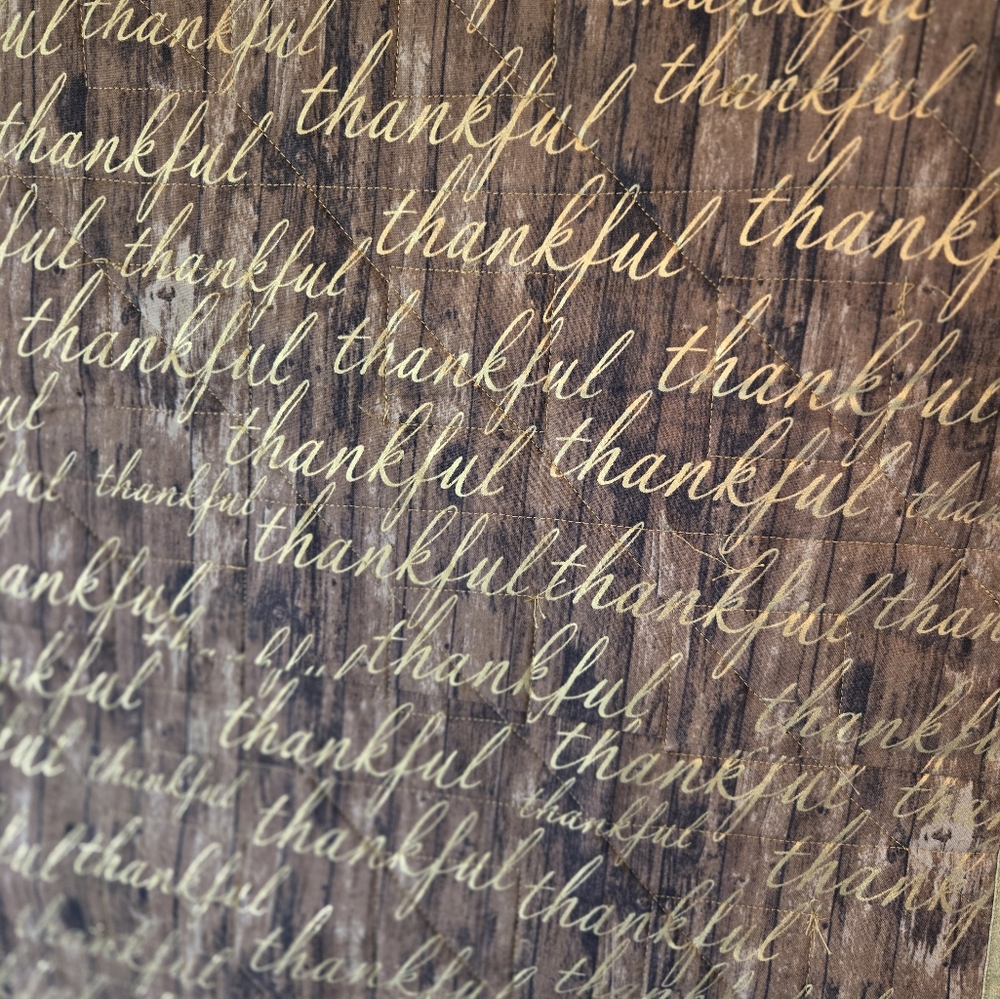 thankful
ul thankful
thankful thankful
thankful
thankful thankf
ful thankful
thankful thankful thankful
ul
thankful thankful
ful thankful than
thankful thankful than
ankful
thankful thankfu
nkful
thankful thankful
ful thankful thankful
thankful thankf
ful thankful thankful
thankful